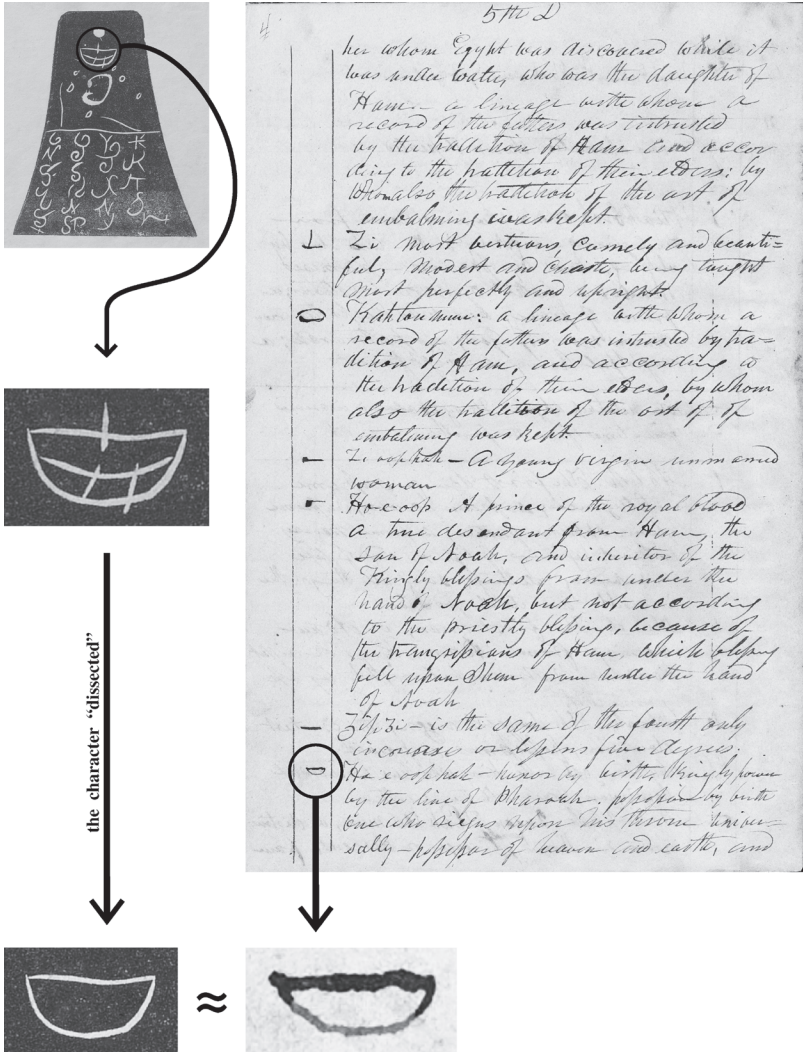 4
5th D
her whom Egypt was discovered while it
was under water, who was the daughter of
Ham — a lineage with whom a
record of the fathers was intrusted
by the tradition of Ham and accor
ding to the tradition of their elders: by
whom also the tradition of the art of
embalming was kept.
Zi most virtuous, comely and beauti=
ful, modest and chaste, being taught
most perfectly and upright.
Kahtoumun: a lineage with whom a
record of the fathers was intrusted by tra=
dition of Ham, and according to
the tradition of their elders, by whom
also the tradition of the art of of
embalming was kept.
Zi oop hah — A young virgin unmarried
woman
Ho-e-oop A prince of the royal blood
a true desendant from Ham, the
son of Noah, and inheritor of the
Kingly blessings from under the
hand of Noah, but not according
to the priestly blessing, because of
the trangrissians of Ham, which blessing
fell upon Shem from under the hand
of Noah
Zip Zi — is the same of the fourth only
increases or lessens five degrees.
Ho e oop hah — honor by birth, Kingly power
by the line of Pharoah. possession by birth
one who reigns upon his throne univer=
sally — possessor of heaven and earth, and
the character “dissected”
≈